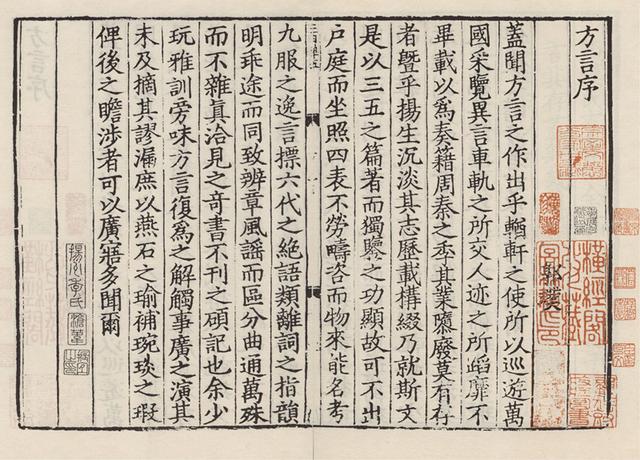 方言序
郭璞
蓋聞方言之作出乎輶軒之使所以巡遊萬
國采覽異言車軌之所交人迹之所蹈靡不
畢載以為奏籍周秦之季其業隳廢莫有存
者曁乎揚生沉淡其志歴載構綴乃就斯文
是以三五之篇著而獨鑒之功顯故可不出
户庭而坐照四表不勞疇咨而物來能名考
九服之逸言摽六代之絶語類離詞之指韻
明乖途而同致辨章風謡而區分曲通萬殊
而不雜真洽見之奇書不刊之碩記也余少
玩雅訓旁味方言復為之解觸事廣之演其
未及摘其謬漏庶以燕石之瑜補琬琰之瑕
俾後之瞻涉者可以廣寤多聞爾